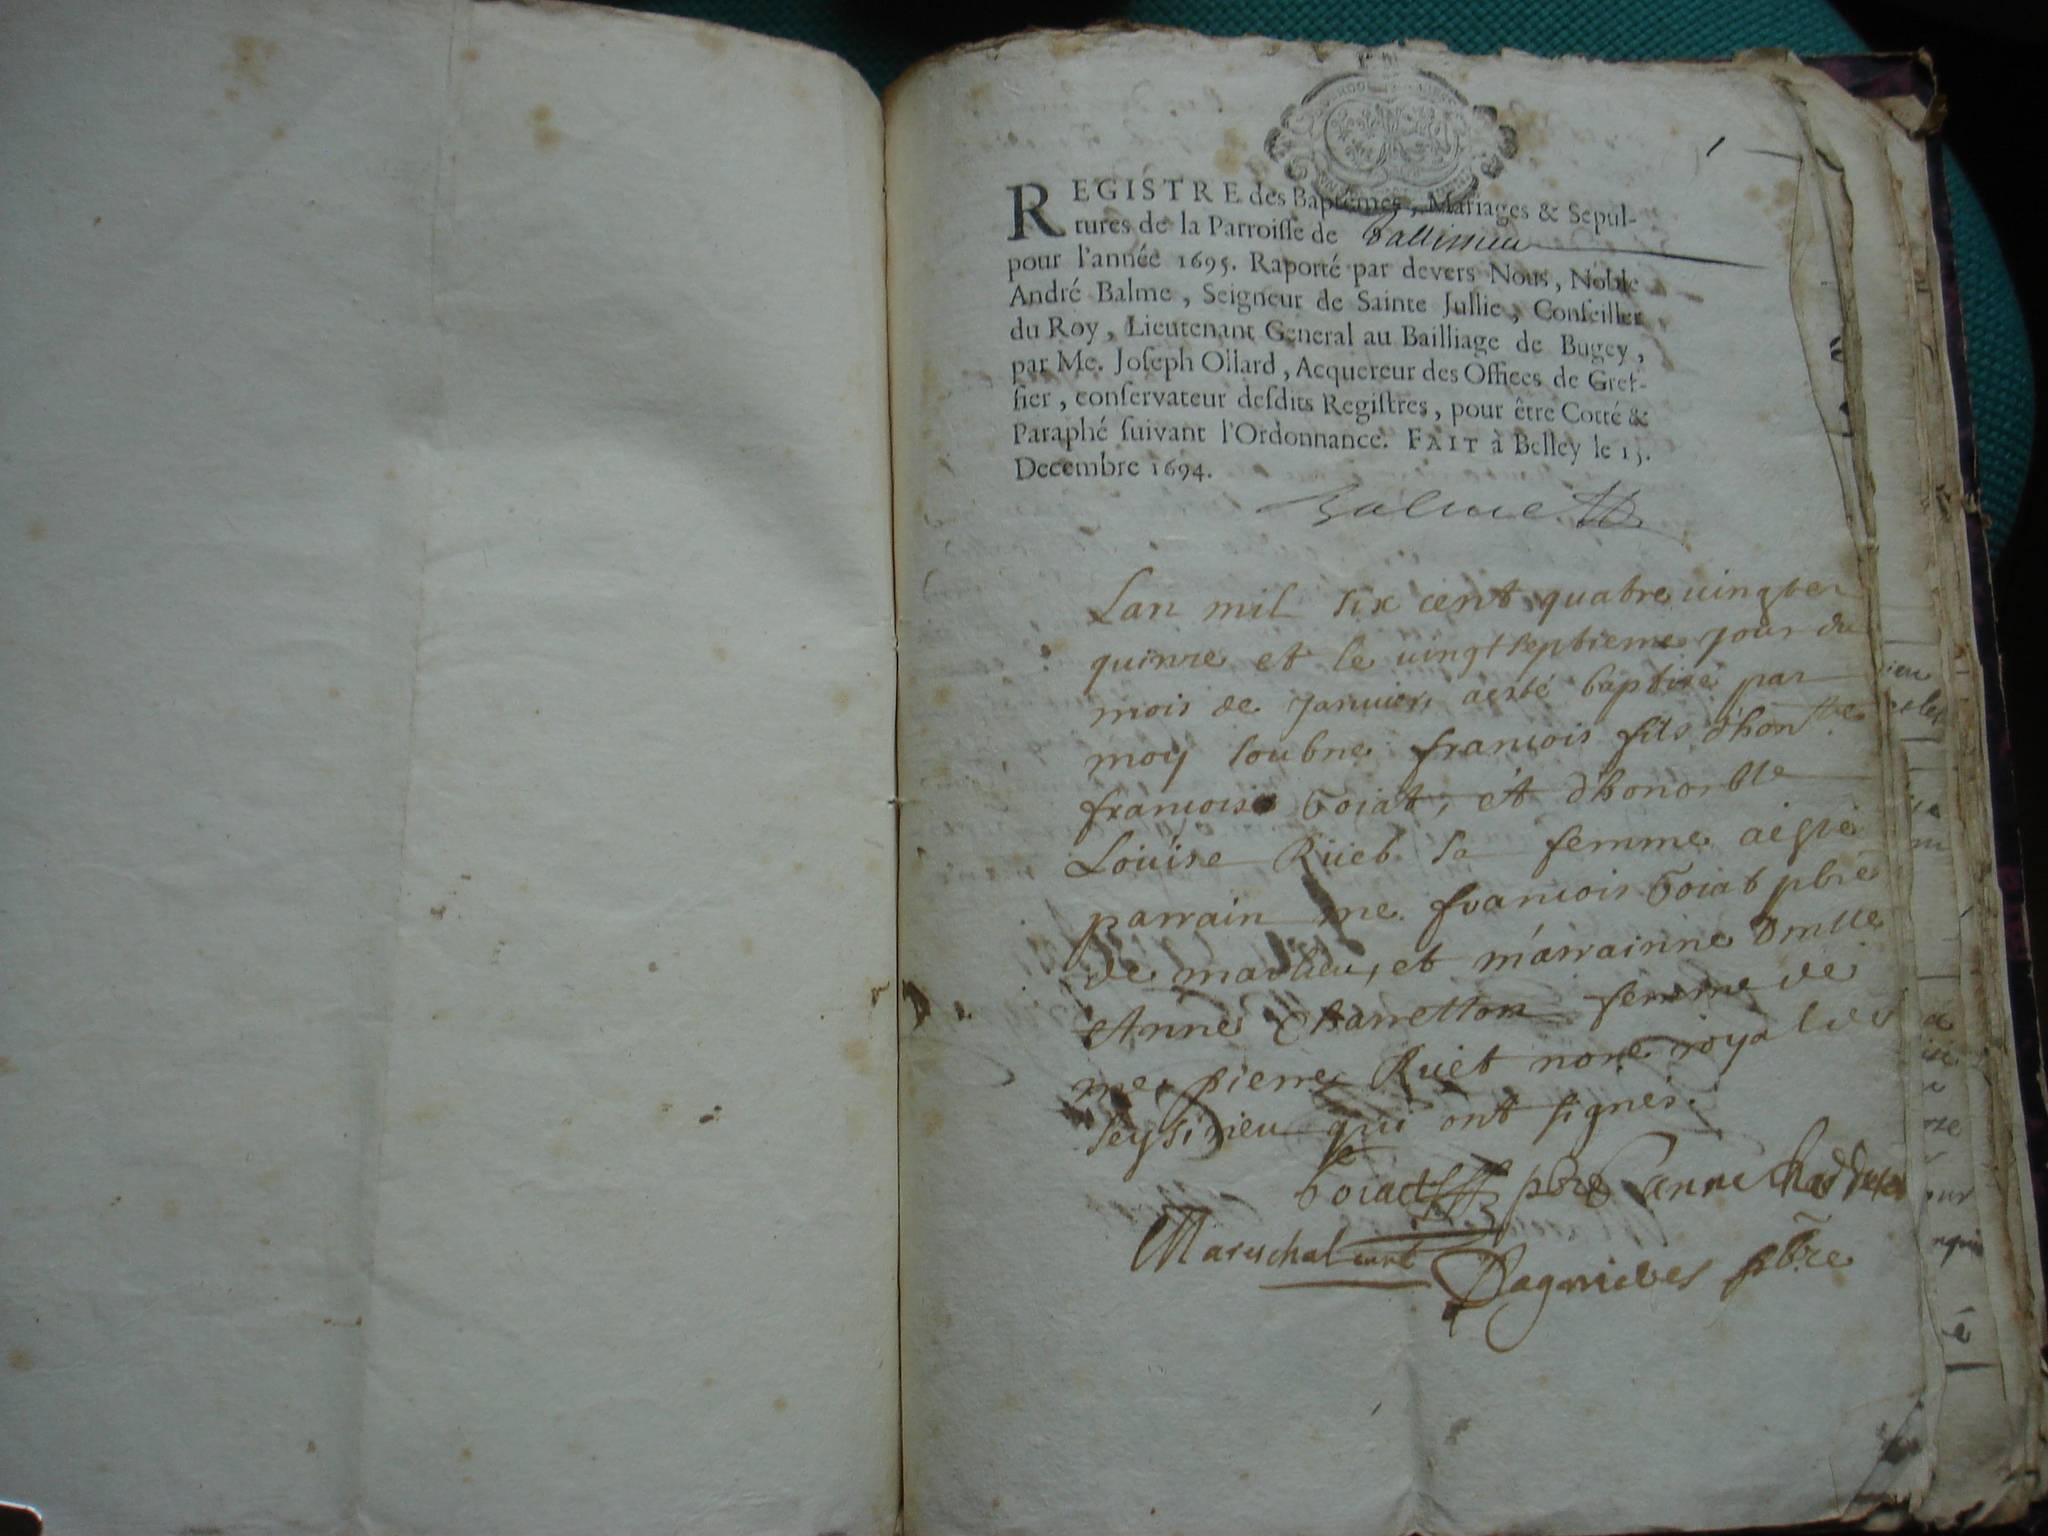 REGISTRE des Baptêmes, Mariages & Sepul-
tures de la Parroisse de
pour l'année 1695. Raporté par devers Nous, Noble
André Balme, Seigneur de Sainte Jullie, Conseiller
du Roy, Lieutenant General au Bailliage de Bugey,
par Me. Joseph Ollard, Acquereur des Offices de Gref-
fier, conservateur desdits Registres, pour être Cotté &
Paraphé suivant l'Ordonnance. FAIT à Belley le 15.
Decembre 1694.
Balme
Lan mil six cent quatre vingt et
quinze et le vingt septieme jour du
mois de janvier a esté baptisé par
moy soubne francois fils d'hon ble
francois Goiat, et d'honorble
Louise Rüet sa femme a esté
parrain me. francois Goiat pbre
de marlieu, et marrainne Dmlle
Anne Charretton femme de
me pierre Rüet nore royal de
seyssirieu qui ont signés.
Goiat pbre anne
Mareschal curé Dagnieres pbre